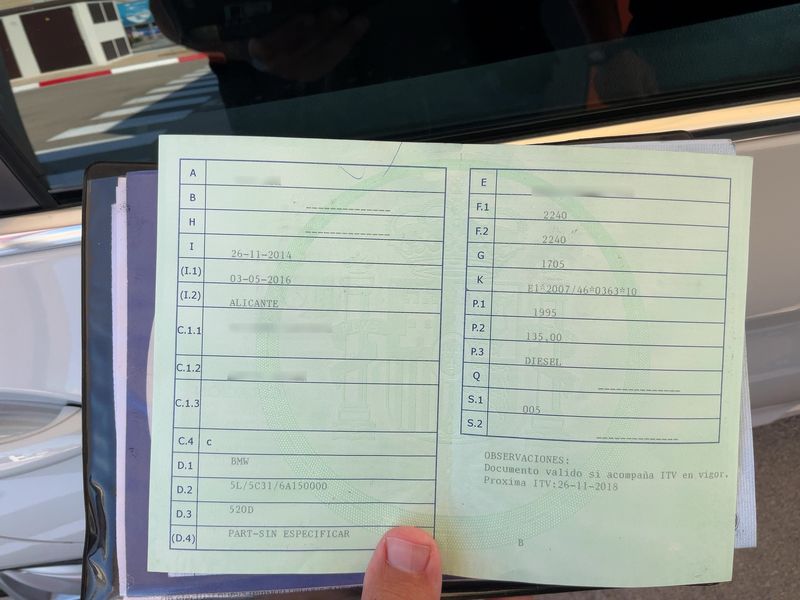 A
B ______________
H ______________
I 26-11-2014
(I.1) 03-05-2016
(I.2) ALICANTE
C.1.1
C.1.2
C.1.3
C.4 c
D.1 BMW
D.2 5L/5C31/6A150000
D.3 520D
(D.4) PART-SIN ESPECIFICAR
E
F.1 2240
F.2 2240
G 1705
K E1*2007/46*0363*10
P.1 1995
P.2 135,00
P.3 DIESEL
Q ______________
S.1 005
S.2 ______________
OBSERVACIONES:
Documento valido si acompaña ITV en vigor.
Proxima ITV:26-11-2018
B